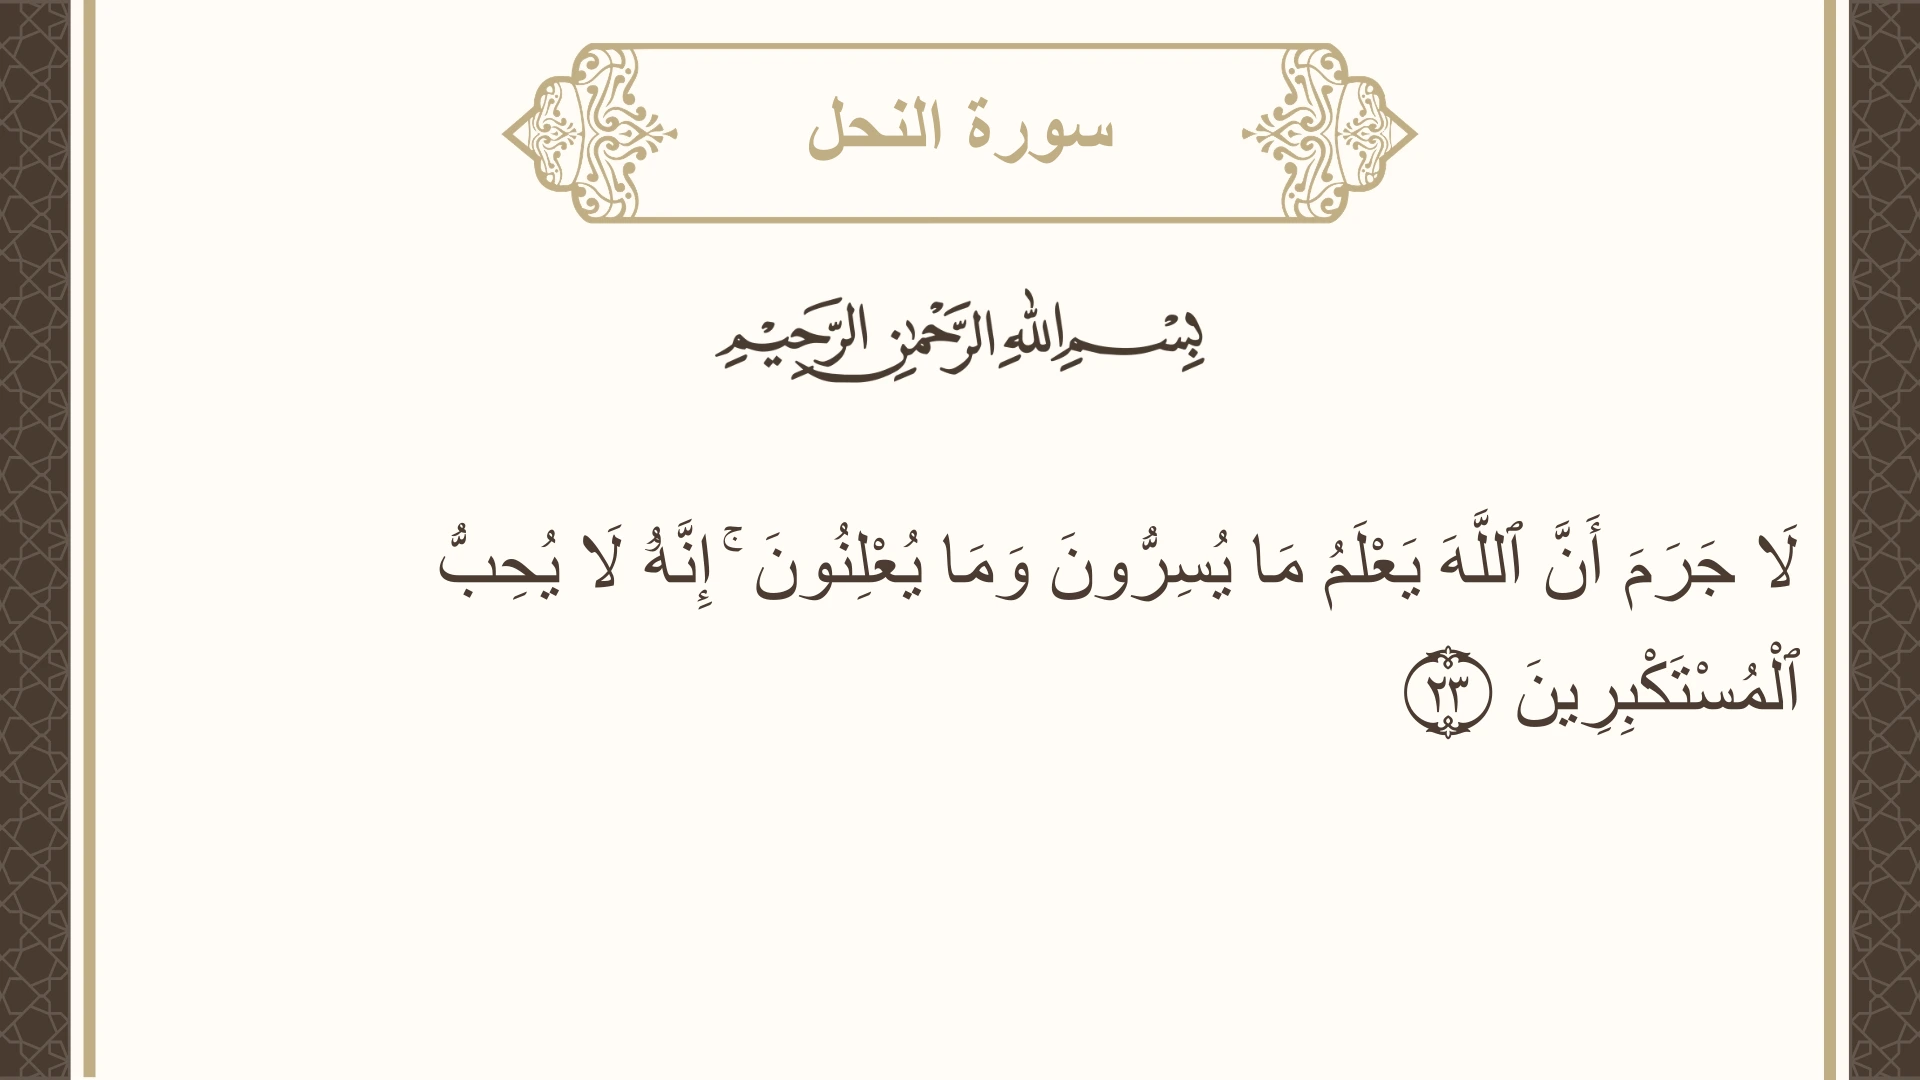 سورة النحل
بِسْمِ اللهِ الرَّحْمٰنِ الرَّحِيْمِ
لَا جَرَمَ أَنَّ ٱللَّهَ يَعْلَمُ مَا يُسِرُّونَ وَمَا يُعْلِنُونَ ۚ إِنَّهُۥ لَا يُحِبُّ
ٱلْمُسْتَكْبِرِينَ ٢٣